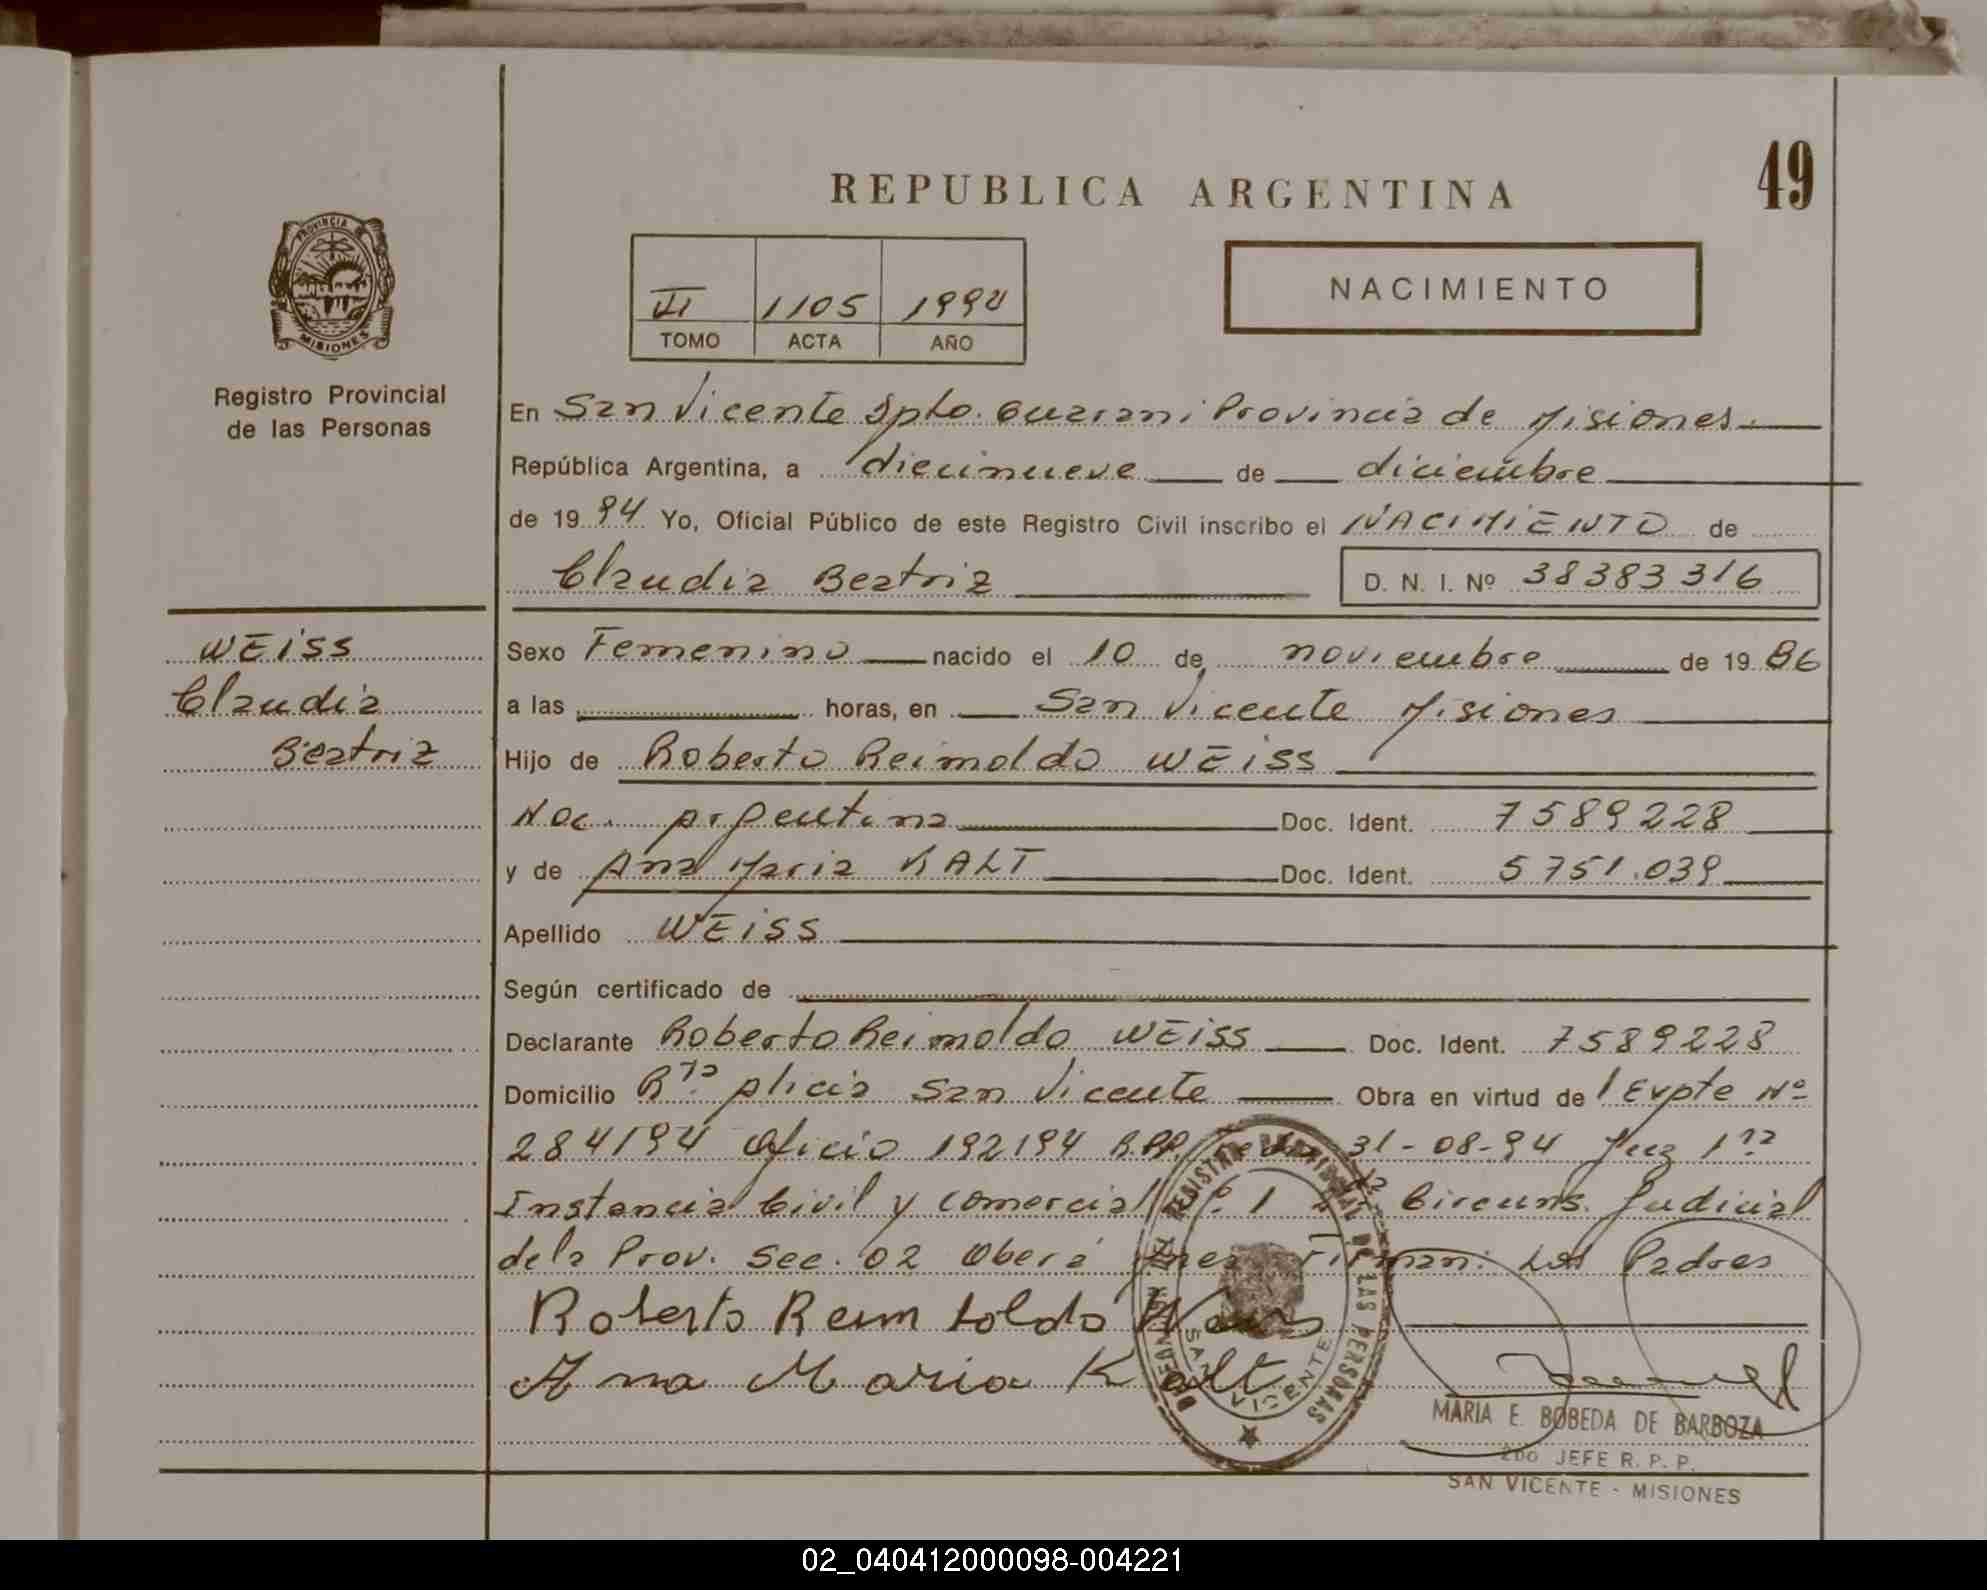 49
REPUBLICA ARGENTINA
PROVINCIA DE
MISIONES
Registro Provincial
de las Personas
NACIMIENTO
VI 1105 1994
TOMO ACTA AÑO
En San Vicente Dpto. Guarani Provincia de Misiones.
República Argentina, a diecinueve de diciembre
de 1994 Yo, Oficial Público de este Registro Civil inscribo el NACIMIENTO de
Claudia Beatriz D. N. I. Nº 38383316
WEISS
Claudia
Beatriz
Sexo Femenino nacido el 10 de noviembre de 1986
a las horas, en San Vicente Misiones
Hijo de Roberto Reinoldo WEISS
Nac. Argentina Doc. Ident. 7589228
y de Ana Maria KALT Doc. Ident. 5751.039
Apellido WEISS
Según certificado de
Declarante Roberto Reinoldo WEISS Doc. Ident. 7589228
Domicilio Alicia San Vicente Obra en virtud de Expte Nº
284/94 Oficio 192194 31-08-94 Juz 1ra
Instancia Civil y Comercial Nº 1 Circuns. Judicial
de la Prov. Sec. 02 Oberá Mnes Firman: Los Padres
Roberto Reim holdo Weiss
Ana Maria Kalt
REGISTRO PROVINCIAL DE LAS PERSONAS
SAN VICENTE
MARIA E. BOBEDA DE BARBOZA
2DO JEFE R. P. P.
SAN VICENTE - MISIONES
02_040412000098-004221